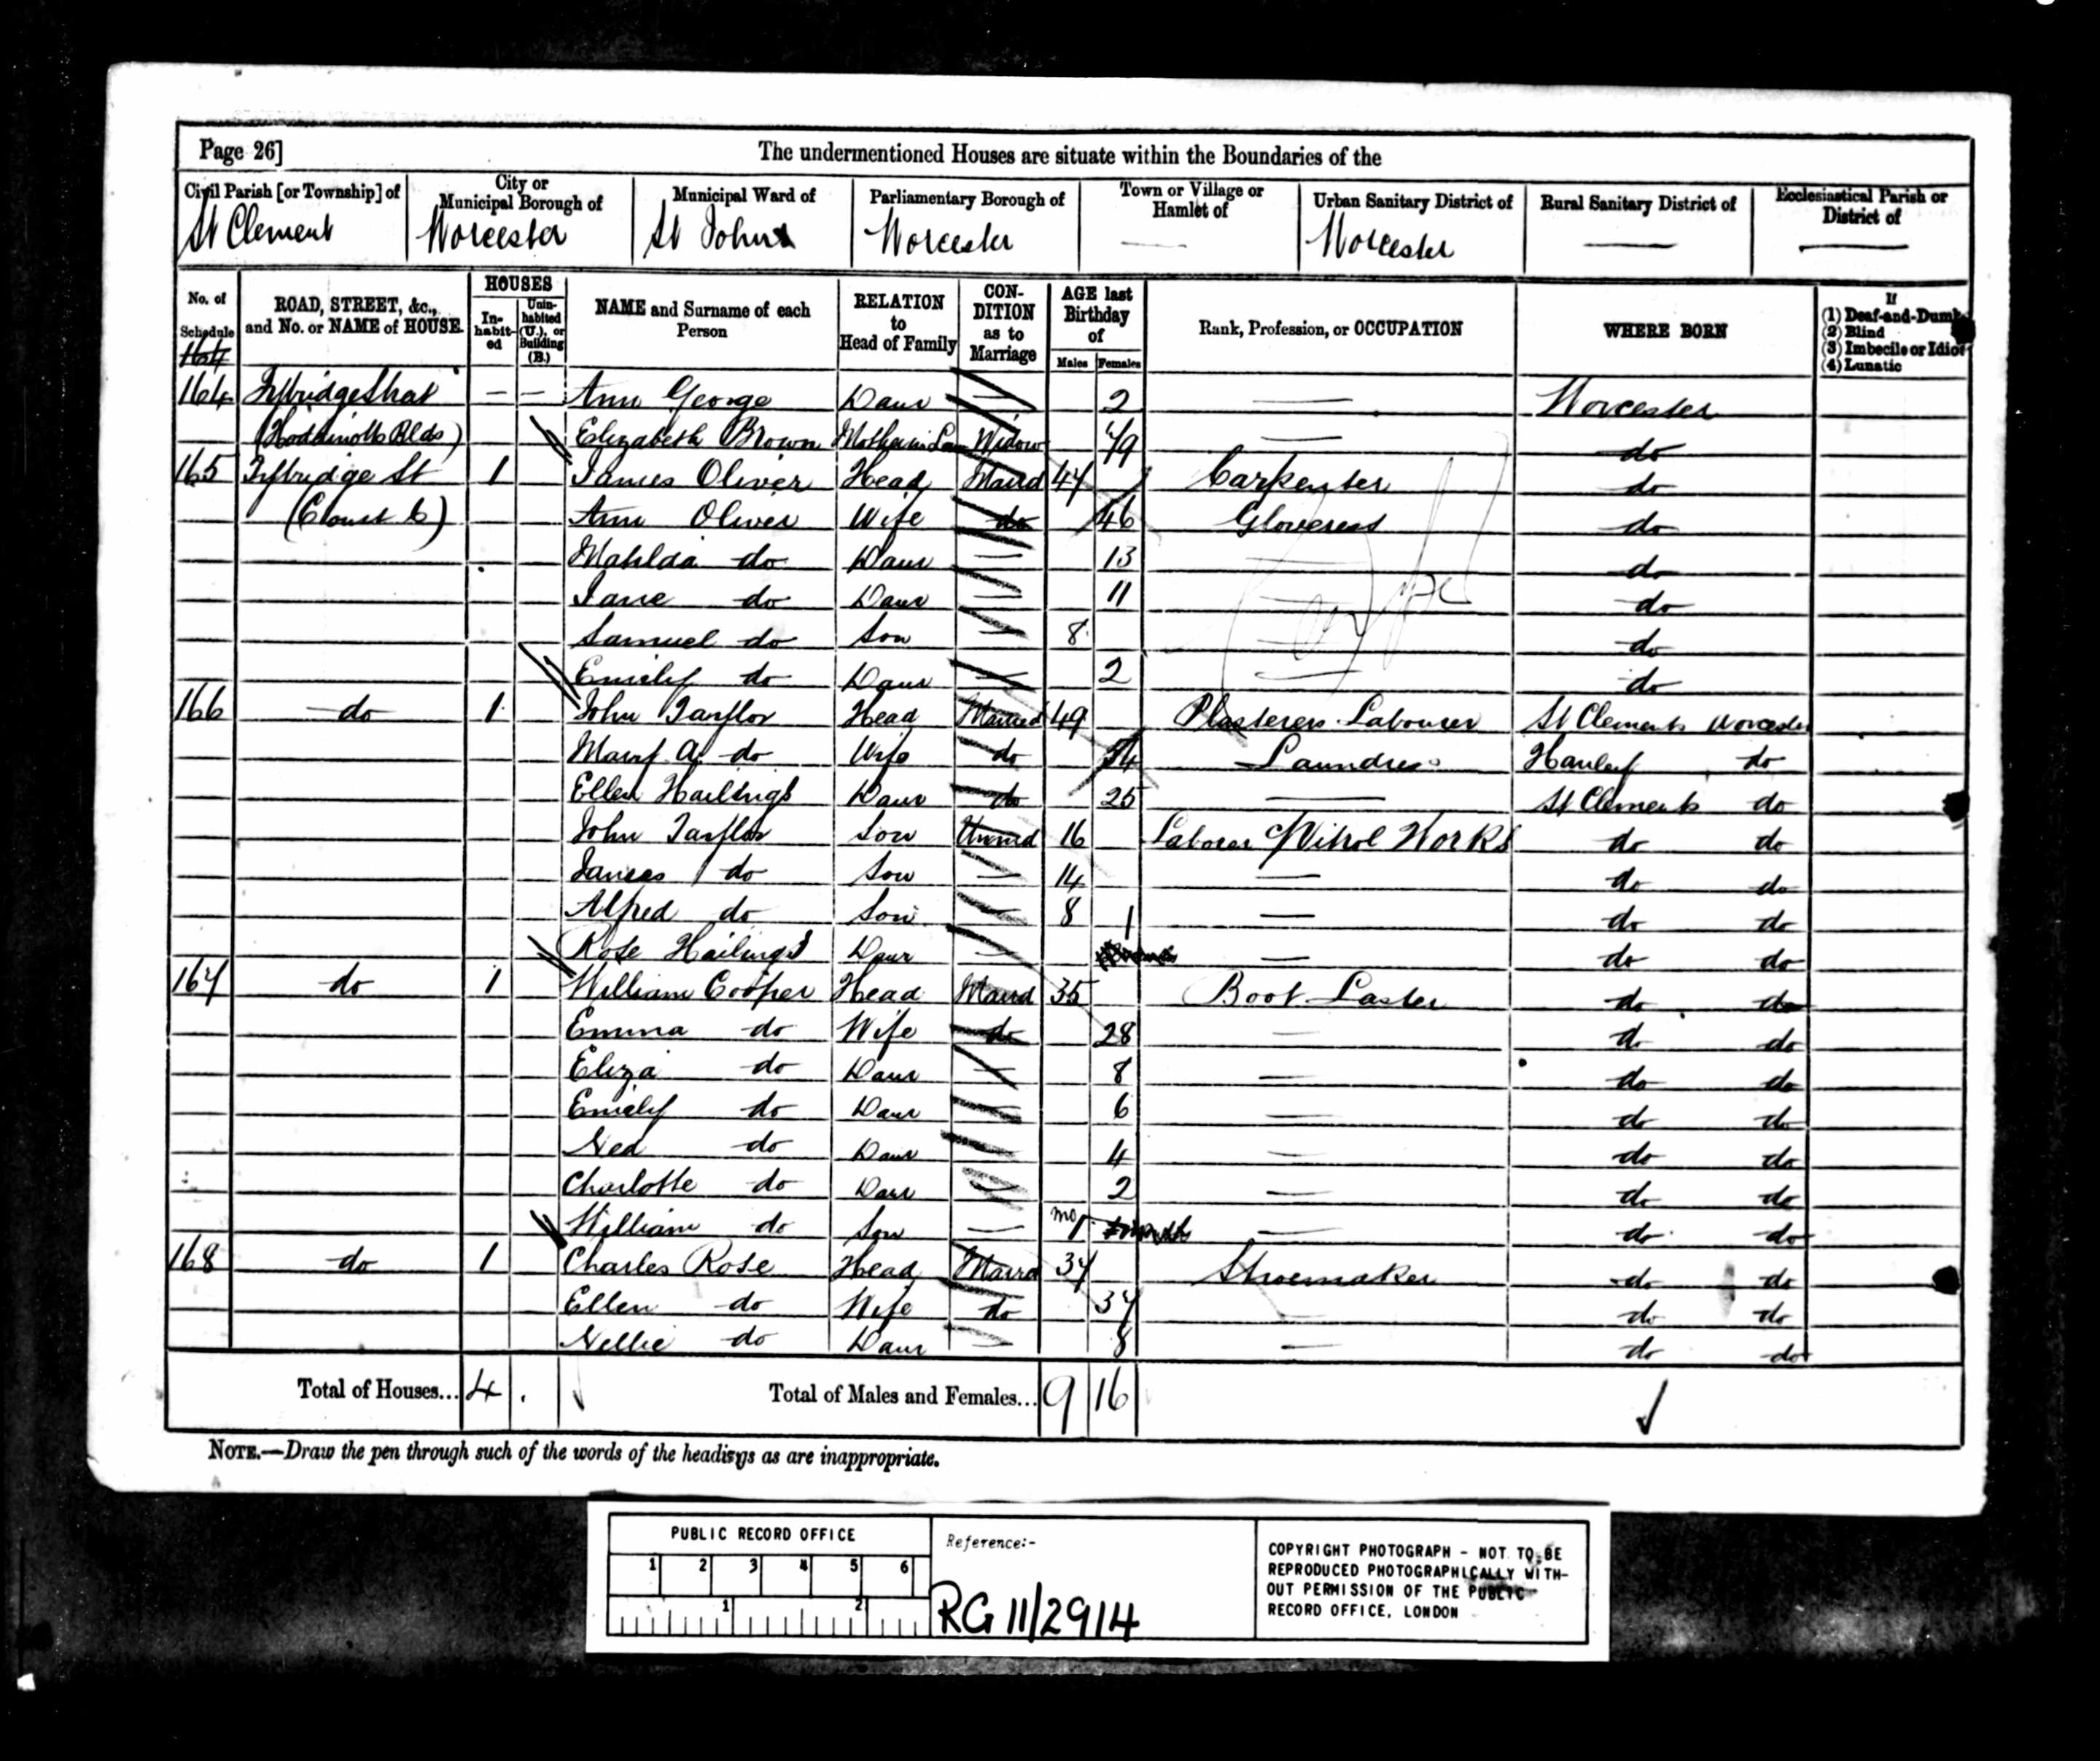 Page 26]
The undermentioned Houses are situate within the Boundaries of the
Civil Parish [or Township] of
St Clement
City or Municipal Borough of
Worcester
Municipal Ward of
St Johns
Parliamentary Borough of
Worcester
Town or Village or Hamlet of
Urban Sanitary District of
Worcester
Rural Sanitary District of
Ecclesiastical Parish or District of
No. of Schedule
ROAD, STREET, &c., and No. or NAME of HOUSE
HOUSES
In-habit-ed
Unin-habited (U.), or Building (B.)
NAME and Surname of each Person
RELATION to Head of Family
CON-DITION as to Marriage
AGE last Birthday of
Males Females
Rank, Profession, or OCCUPATION
WHERE BORN
If
(1) Deaf-and-Dumb
(2) Blind
(3) Imbecile or Idiot
(4) Lunatic
164 — — Ann George Daur — 2 — Worcester
Elizabeth Brown Mother in Law Widow — do
165 St 1 James Oliver Head Marrd 47 Carpenter do
Ann Oliver Wife do 46 Gloveress do
Matilda do Daur — 13 — do
Jane do Daur — 11 — do
Samuel do Son — 8 — do
Emily do Daur — 2 — do
166 do 1 John Taylor Head Married 49 Plasterers Labourer St Clements Worcester
Mary A. do Wife do 54 Laundress Hanley do
Ellen Hailings Daur do 25 — St Clements do
John Taylor Son Unmd 16 Laborer Vitrol Works do do
James do Son — 14 — do do
Alfred do Son — 8 — do do
Rose Hailings Daur — 1 — do do
167 do 1 William Cooper Head Marrd 35 Boot Laster do do
Emma do Wife do 28 — do do
Eliza do Daur — 8 — do do
Emily do Daur — 6 — do do
do Daur — 4 — do do
Charlotte do Daur — 2 — do do
William do Son — mo 1 — do do
168 do 1 Charles Rose Head Marrd 37 Shoemaker do do
Ellen do Wife do 37 — do do
Nellie do Daur — 8 — do do
Total of Houses... 4
Total of Males and Females... 9 16
NOTE.—Draw the pen through such of the words of the headings as are inappropriate.
PUBLIC RECORD OFFICE
1 2 3 4 5 6
1 2
Reference:-
RG 11/2914
COPYRIGHT PHOTOGRAPH - NOT TO BE
REPRODUCED PHOTOGRAPHICALLY WITH-
OUT PERMISSION OF THE PUBLIC
RECORD OFFICE, LONDON